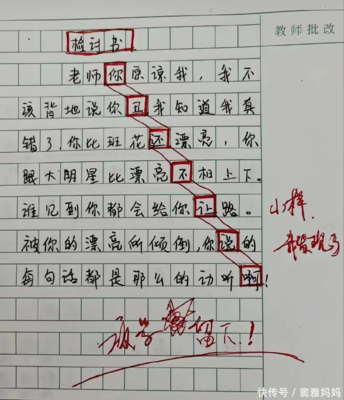 教师批改
检讨书
老师你原谅我，我不
该背地说你丑我知道我真
错了你比班花还漂亮，你
跟大明星比漂亮不相上下。
谁见到你都会给你让路。
被你的漂亮所倾倒，你说的
每句话都是那么的动听啊！
小样，
我发现了
放学
留下！
快传号／窦雅妈妈